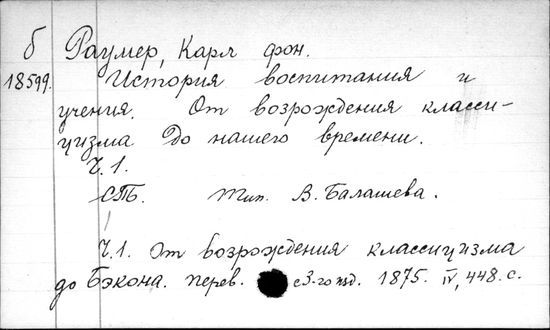 б Раумер, Карл фон.
18599. История воспитания и
учения. От возрождения класси-
цизма до нашего времени.
Ч.1.
СПБ. Тип. В. Балашева.
Ч.1. От возрождения классицизма
до Бэкона. перев. с 3-го изд. 1875. IV, 448. с.